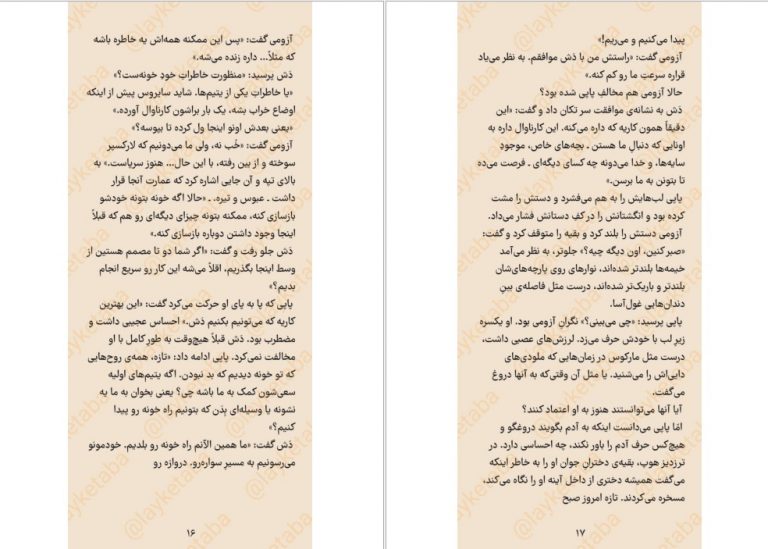 پیدا می‌کنیم و می‌ریم!»
آزومی گفت: «راستش من با دَش موافقم. به نظر می‌یاد
قراره سرعتِ ما رو کم کنه.»
حالا آزومی هم مخالفِ پاپی شده بود؟
دَش به نشانه‌ی موافقت سر تکان داد و گفت: «این
دقیقاً همون کاریه که داره می‌کنه. این کارناوال داره به
اونایی که دنبالِ ما هستن ـ بچه‌های خاص، موجودِ
سایه‌ها، و خدا می‌دونه چه کسای دیگه‌ای ـ فرصت می‌ده
تا بتونن به ما برسن.»
پاپی لب‌هایش را به هم می‌فشرد و دستش را مشت
کرده بود و انگشتانش را در کفِ دستانش فشار می‌داد.
آزومی دستش را بلند کرد و بقیه را متوقف کرد و گفت:
«صبر کنین، اون دیگه چیه؟» جلوتر، به نظر می‌آمد
خیمه‌ها بلندتر شده‌اند، نوارهای روی پارچه‌های‌شان
بلندتر و باریک‌تر شده‌اند، درست مثل فاصله‌ی بینِ
دندان‌هایی غول‌آسا.
پاپی پرسید: «چی می‌بینی؟» نگرانِ آزومی بود. او یکسره
زیرِ لب با خودش حرف می‌زد. لرزش‌های عصبی داشت،
درست مثل مارکوس در زمان‌هایی که ملودی‌های
دایی‌اش را می‌شنید. یا مثل آن وقتی‌که به آنها دروغ
می‌گفت.
آیا آنها می‌توانستند هنوز به او اعتماد کنند؟
امّا پاپی می‌دانست اینکه به آدم بگویند دروغگو و
هیچ‌کس حرف آدم را باور نکند، چه احساسی دارد. در
ترزدیز هوپ، بقیه‌ی دخترانِ جوان او را به خاطر اینکه
می‌گفت همیشه دختری از داخل آینه او را نگاه می‌کند،
مسخره می‌کردند. تازه امروز صبح
۱۷
آزومی گفت: «پس این ممکنه همه‌اش یه خاطره باشه
که مثلاً... داره زنده می‌شه.»
دَش پرسید: «منظورت خاطراتِ خودِ خونه‌ست؟»
«یا خاطراتِ یکی از یتیم‌ها. شاید سایروس پیش از اینکه
اوضاع خراب بشه، یک بار براشون کارناوال آورده.»
«یعنی بعدش اونو اینجا ول کرده تا بپوسه؟»
آزومی گفت: «خُب نه، ولی ما می‌دونیم که لارکسپر
سوخته و از بین رفته، با این حال... هنوز سرپاست.» به
بالای تپه و آن جایی اشاره کرد که عمارت آنجا قرار
داشت ـ عبوس و تیره. ـ «حالا اگه خونه بتونه خودشو
بازسازی کنه، ممکنه بتونه چیزای دیگه‌ای رو هم که قبلاً
اینجا وجود داشتن دوباره بازسازی کنه.»
دَش جلو رفت و گفت: «اگر شما دو تا مصمم هستین از
وسط اینجا بگذریم، اقلاً می‌شه این کار رو سریع انجام
بدیم؟»
پاپی که پا به پای او حرکت می‌کرد گفت: «این بهترین
کاریه که می‌تونیم بکنیم دَش.» احساس عجیبی داشت و
مضطرب بود. دَش قبلاً هیچ‌وقت به طورِ کامل با او
مخالفت نمی‌کرد. پاپی ادامه داد: «تازه، همه‌ی روح‌هایی
که تو خونه دیدیم که بد نبودن. اگه یتیم‌های اولیه
سعی‌شون کمک به ما باشه چی؟ یعنی بخوان به ما یه
نشونه یا وسیله‌ای بِدَن که بتونیم راه خونه رو پیدا
کنیم؟»
دَش گفت: «ما همین الآنم راه خونه رو بلدیم. خودمونو
می‌رسونیم به مسیرِ سواره‌رو. دروازه رو
۱۶
@layketaba